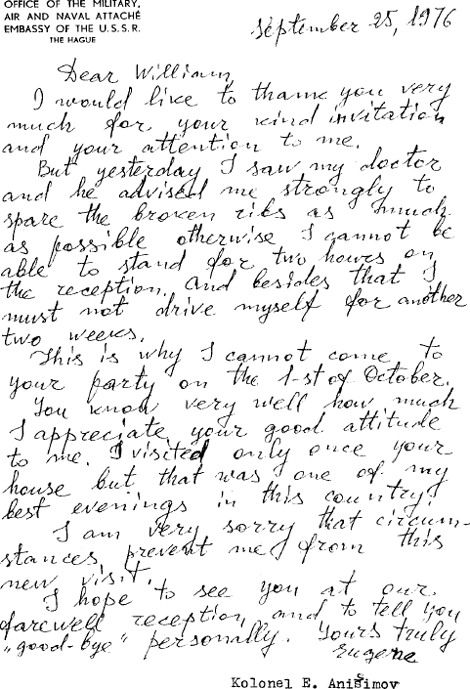 OFFICE OF THE MILITARY,
AIR AND NAVAL ATTACHÉ
EMBASSY OF THE U.S.S.R.
THE HAGUE
September 25, 1976
Dear William,
I would like to thank you very
much for your kind invitation
and your attention to me.
But yesterday I saw my doctor
and he advised me strongly to
spare the broken ribs as much
as possible otherwise I cannot be
able to stand for two hours on
the reception. And besides that I
must not drive myself for another
two weeks.
This is why I cannot come to
your party on the 1-st of October.
You know very well how much
I appreciate your good attitude
to me. I visited only once your
house but that was one of my
best evenings in this country.
I am very sorry that circum-
stances prevent me from this
new visit.
I hope to see you at our
farewell reception and to tell you
„good-bye" personally. Yours truly
Eugene
Kolonel E. Anisimov